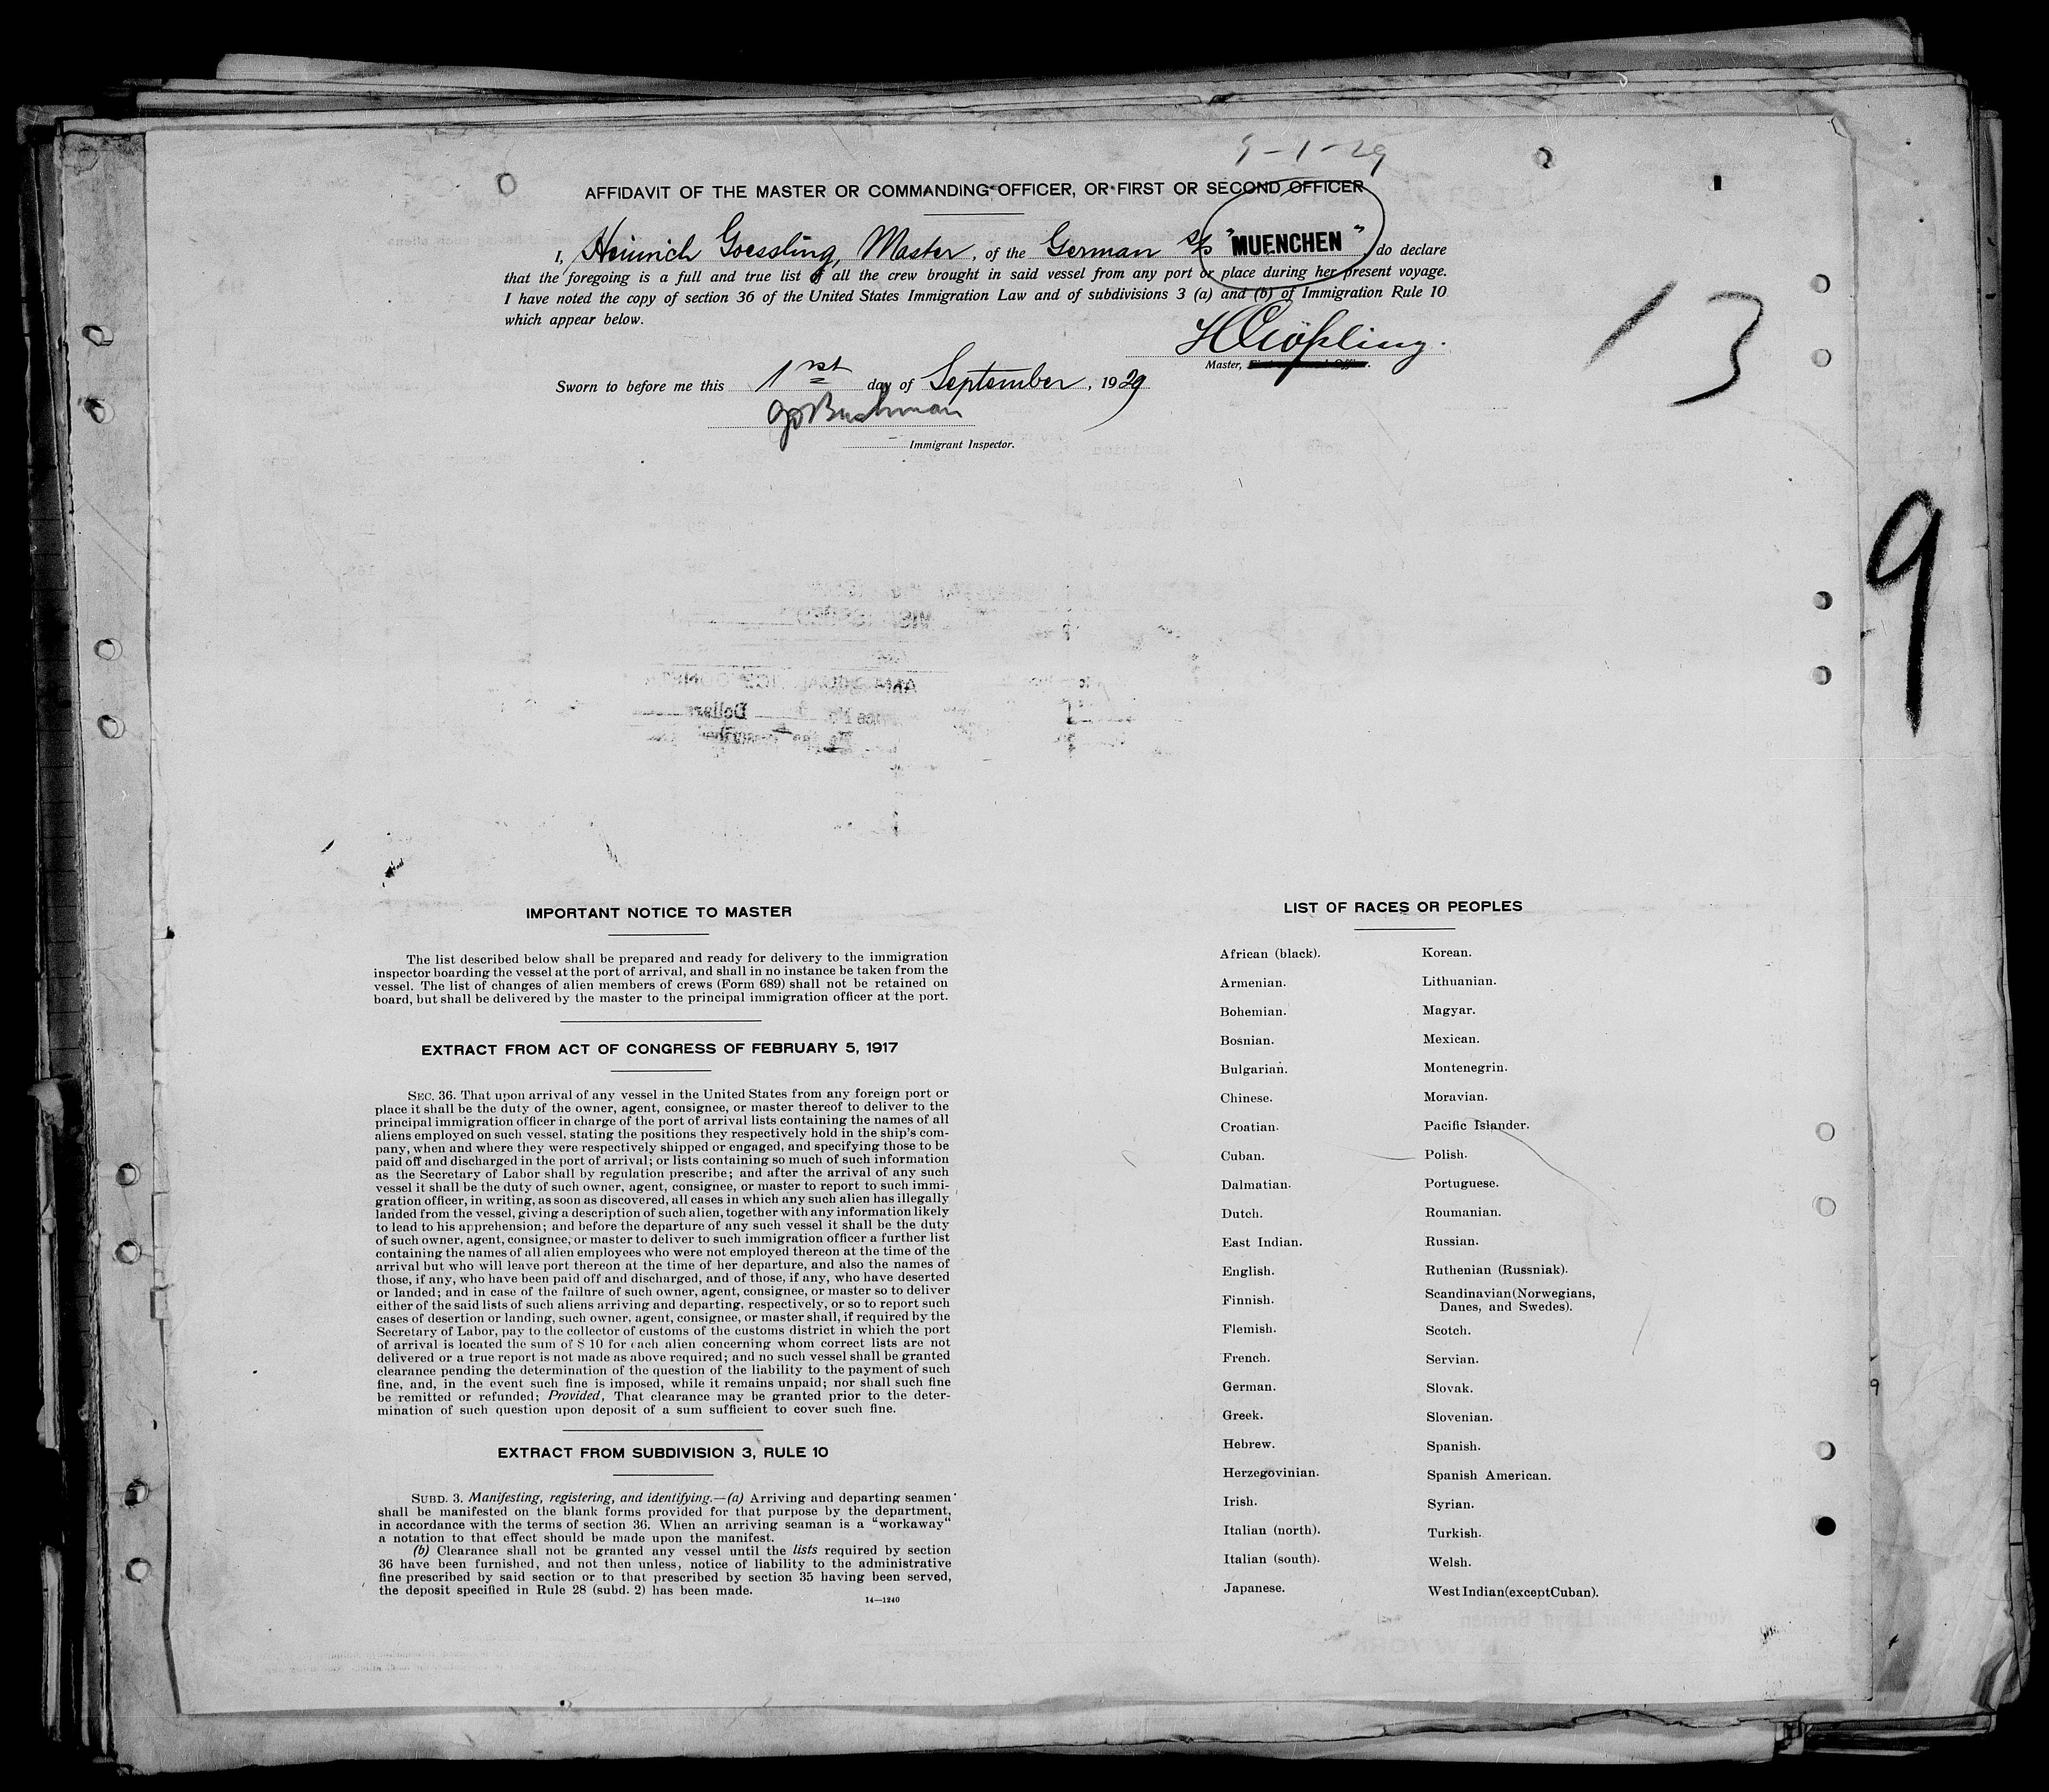 9-1-29
AFFIDAVIT OF THE MASTER OR COMMANDING OFFICER, OR FIRST OR SECOND OFFICER
I, Heinrich Goessling, Master, of the German S/S "MUENCHEN" do declare
that the foregoing is a full and true list of all the crew brought in said vessel from any port or place during her present voyage.
I have noted the copy of section 36 of the United States Immigration Law and of subdivisions 3 (a) and (b) of Immigration Rule 10
which appear below.
13
Master,
Sworn to before me this 1st day of September, 1929
Buchman
Immigrant Inspector.
9
IMPORTANT NOTICE TO MASTER
The list described below shall be prepared and ready for delivery to the immigration
inspector boarding the vessel at the port of arrival, and shall in no instance be taken from the
vessel. The list of changes of alien members of crews (Form 689) shall not be retained on
board, but shall be delivered by the master to the principal immigration officer at the port.
EXTRACT FROM ACT OF CONGRESS OF FEBRUARY 5, 1917
SEC. 36. That upon arrival of any vessel in the United States from any foreign port or
place it shall be the duty of the owner, agent, consignee, or master thereof to deliver to the
principal immigration officer in charge of the port of arrival lists containing the names of all
aliens employed on such vessel, stating the positions they respectively hold in the ship's com-
pany, when and where they were respectively shipped or engaged, and specifying those to be
paid off and discharged in the port of arrival; or lists containing so much of such information
as the Secretary of Labor shall by regulation prescribe; and after the arrival of any such
vessel it shall be the duty of such owner, agent, consignee, or master to report to such immi-
gration officer, in writing, as soon as discovered, all cases in which any such alien has illegally
landed from the vessel, giving a description of such alien, together with any information likely
to lead to his apprehension; and before the departure of any such vessel it shall be the duty
of such owner, agent, consignee, or master to deliver to such immigration officer a further list
containing the names of all alien employees who were not employed thereon at the time of the
arrival but who will leave port thereon at the time of her departure, and also the names of
those, if any, who have been paid off and discharged, and of those, if any, who have deserted
or landed; and in case of the failure of such owner, agent, consignee, or master so to deliver
either of the said lists of such aliens arriving and departing, respectively, or so to report such
cases of desertion or landing, such owner, agent, consignee, or master shall, if required by the
Secretary of Labor, pay to the collector of customs of the customs district in which the port
of arrival is located the sum of $ 10 for each alien concerning whom correct lists are not
delivered or a true report is not made as above required; and no such vessel shall be granted
clearance pending the determination of the question of the liability to the payment of such
fine, and, in the event such fine is imposed, while it remains unpaid; nor shall such fine
be remitted or refunded; Provided, That clearance may be granted prior to the deter-
mination of such question upon deposit of a sum sufficient to cover such fine.
EXTRACT FROM SUBDIVISION 3, RULE 10
SUBD. 3. Manifesting, registering, and identifying.—(a) Arriving and departing seamen
shall be manifested on the blank forms provided for that purpose by the department,
in accordance with the terms of section 36. When an arriving seaman is a "workaway"
a notation to that effect should be made upon the manifest.
(b) Clearance shall not be granted any vessel until the lists required by section
36 have been furnished, and not then unless, notice of liability to the administrative
fine prescribed by said section or to that prescribed by section 35 having been served,
the deposit specified in Rule 28 (subd. 2) has been made.
14—1240
LIST OF RACES OR PEOPLES
African (black).
Armenian.
Bohemian.
Bosnian.
Bulgarian.
Chinese.
Croatian.
Cuban.
Dalmatian.
Dutch.
East Indian.
English.
Finnish.
Flemish.
French.
German.
Greek.
Hebrew.
Herzegovinian.
Irish.
Italian (north).
Italian (south).
Japanese.
Korean.
Lithuanian.
Magyar.
Mexican.
Montenegrin.
Moravian.
Pacific Islander.
Polish.
Portuguese.
Roumanian.
Russian.
Ruthenian (Russniak).
Scandinavian(Norwegians,
Danes, and Swedes).
Scotch.
Servian.
Slovak.
Slovenian.
Spanish.
Spanish American.
Syrian.
Turkish.
Welsh.
West Indian(except Cuban).
9